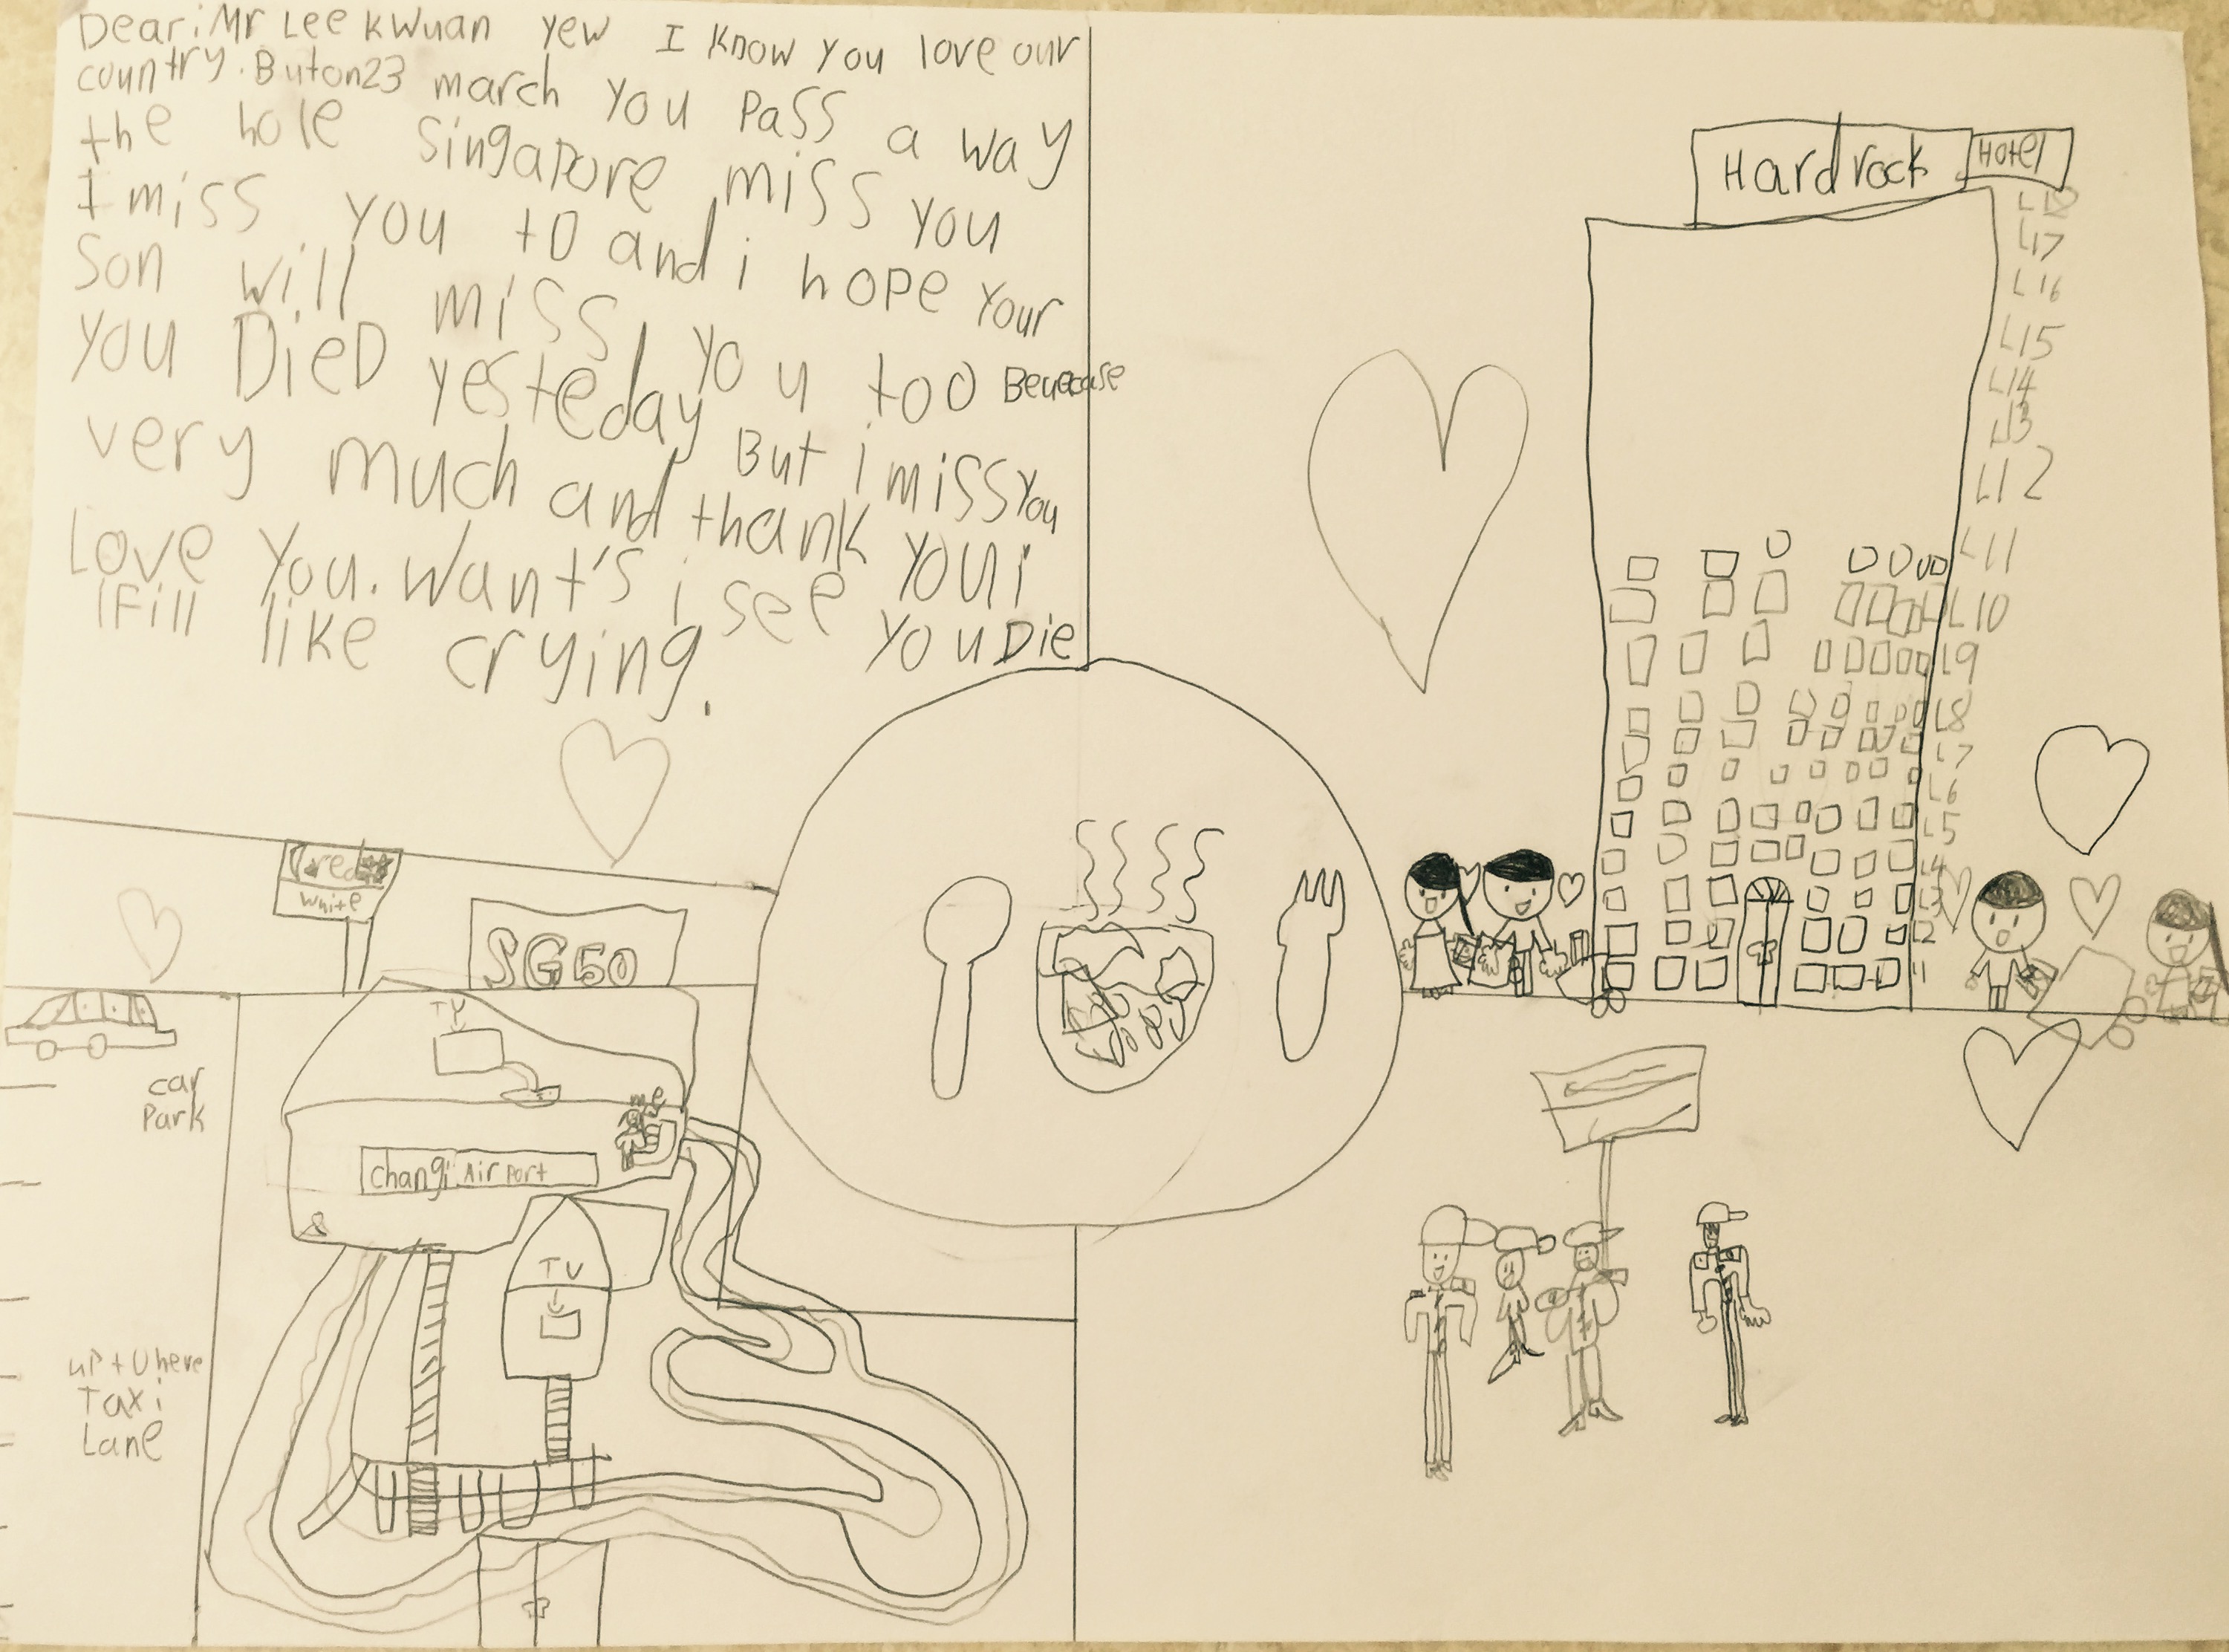 Dear: Mr Lee Kwuan yew I know you love our
country. But on 23 march you Pass a way
the hole Singapore miss you
I miss you to and i hope your
Son will miss you too Beuecase
you DieD yesteday But i miss you
very much and thank you i
Love you. Want's i see you Die
I Fill like crying.
Hardrock
Hotel
L18
L17
L16
L15
L14
L13
L12
L11
L10
L9
L8
L7
L6
L5
L4
L3
L2
L1
red
white
SG50
TV
me
car
Park
changi Air port
TV
up + U here
Taxi
Lane